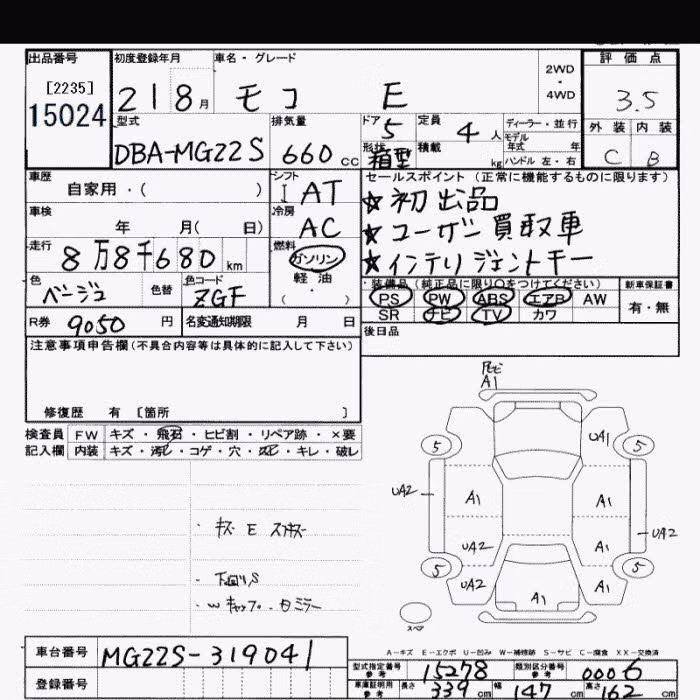 出品番号 初度登録年月 車名・グレード 評価点
[2235] 2WD
・
15024 21 8月 モコ E 4WD 3.5
型式 排気量 ドア 5 定員 4人 ディーラー・並行 外装 内装
モデル
年式 年
DBA-MG22S 660cc 形状 箱型 積載 kg ハンドル 左・右 C B
車歴 シフト セールスポイント (正常に機能するものに限ります)
自家用・( ) I AT ☆初出品
車検 冷房 ☆ユーザー買取車
年 月( 日) AC ☆インテリジェントキー
走行 燃料
8万8千680km ガソリン
軽油
( )
色 色替 色コード 装備品(純正品に限り○をつけてください) 新車保証書
ベージュ ZGF PS PW ABS エアB AW 有・無
R券 9050円 名変通知期限 月 日 SR ナビ TV カワ
注意事項申告欄(不具合内容等は具体的に記入して下さい) 後日品
修復歴 有 〔箇所 〕
検査員 FW キズ・飛石・ヒビ割・リペア跡・×要
記入欄 内装 キズ・汚レ・コゲ・穴・スレ・キレ・破レ
A1
5 UA1 5
UA2 A1 A1
UA2 A1 UA2
5 5
UA2 A1 A1
・下回りS
スペア
A-キズ E-エクボ U-凹み W-補修跡 S-サビ C-腐食 XX-交換済
車台番号 MG22S-319041
型式指定番号 参考 15278 類別区分番号 参考 0006
登録番号
車庫証明用 参考 長さ 339cm 幅 147cm 高さ 162cm